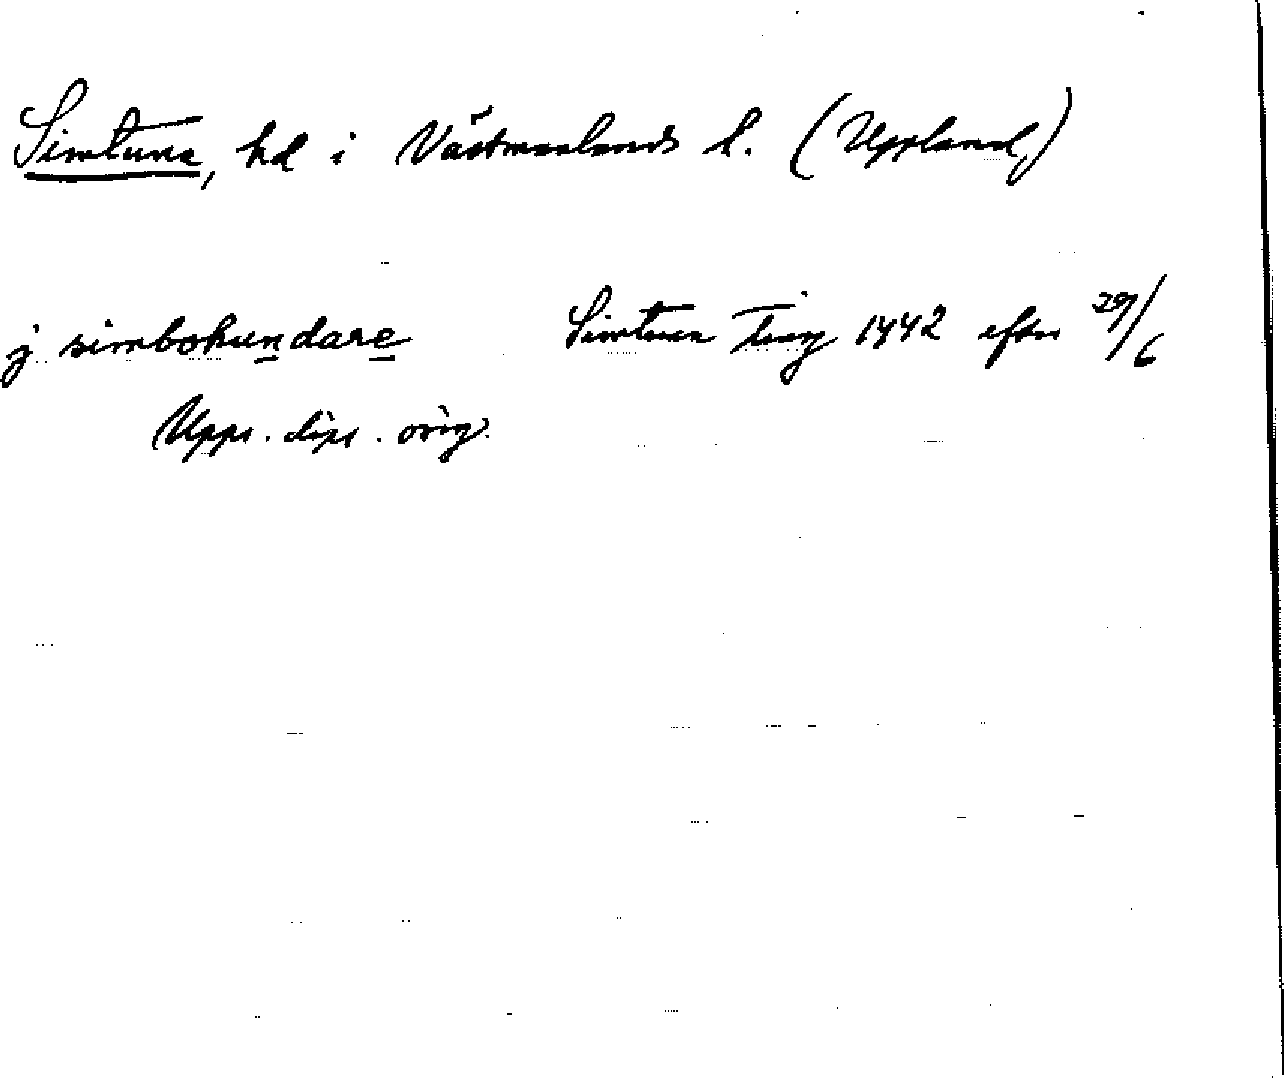 Simtuna, hd i Västmanlands l. (Uppland)
j simbohundare Simtuna Ting 1442 efter 29/6
Upps. dipl. orig.